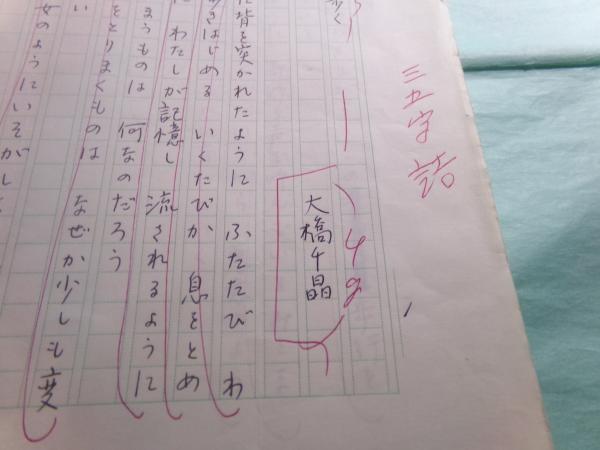 三五字詰
歩く
大橋千晶
に背を突かれたように ふたたび わ
歩きはじめる いくたびか 息をとめ
た わたしが記憶し 流されるように
まうものは 何なのだろう
をとりまくものは なぜか少しも変
い
女のようにいそがし